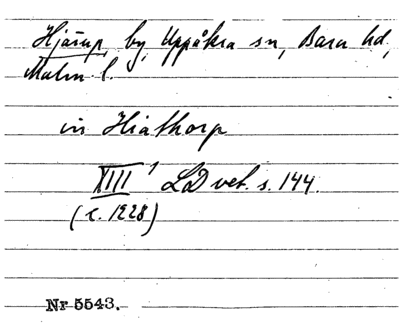 Hjärup, by, Uppåkra sn, Bara hd,
Malm l.
in Hiathorp
XIII¹ LD vet. s. 144.
(c. 1228)
Nr 5543.